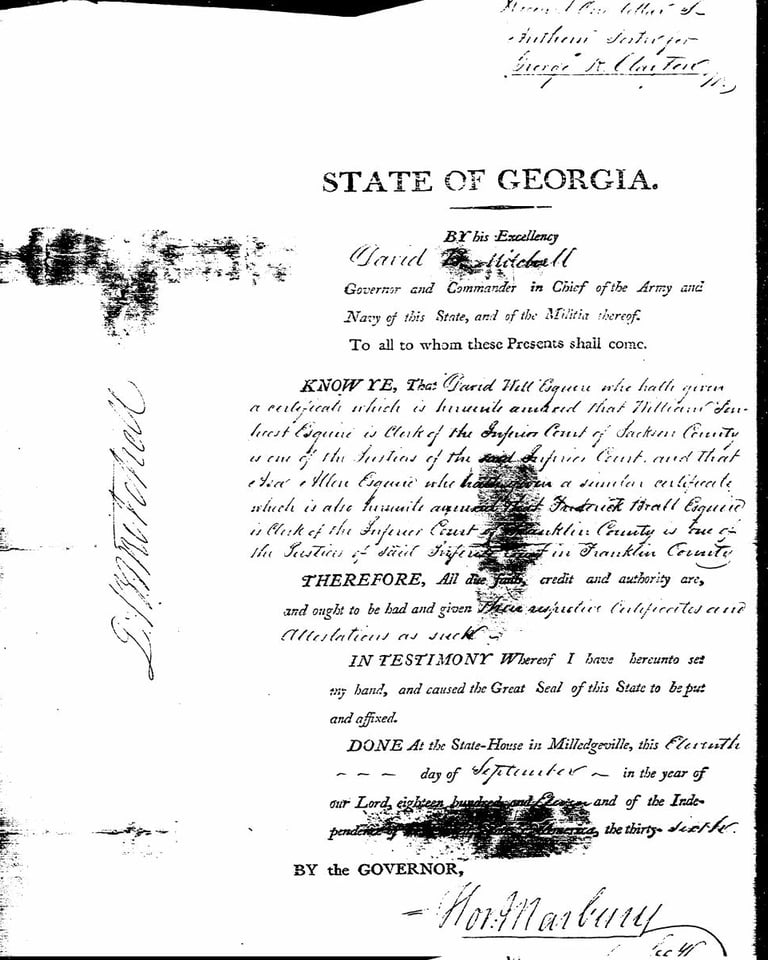 George R. Clayton
STATE OF GEORGIA.
BY his Excellency
David B. Mitchell
Governor and Commander in Chief of the Army and
Navy of this State, and of the Militia thereof.
To all to whom these Presents shall come.
KNOW YE, That David Will Esquire who hath given
a certificate which is hereunto annexed that William
Esquire is Clerk of the Inferior Court of Jackson County
is one of the Justices of the said Inferior Court, and that
Asa Allen Esquire who hath given a similar certificate
which is also hereunto annexed that Frederick Beall Esquire
is Clerk of the Inferior Court of Franklin County is one of
the Justices of said Inferior Court in Franklin County
THEREFORE, All due faith, credit and authority are,
and ought to be had and given their respective Certificates and
Attestations as such
IN TESTIMONY Whereof I have hereunto set
my hand, and caused the Great Seal of this State to be put
and affixed.
DONE At the State-House in Milledgeville, this Eleventh
day of September in the year of
our Lord, eighteen hundred and Eleven and of the Inde-
pendence of America, the thirty-sixth.
BY the GOVERNOR,
Hor. Marbury
Secy
D. B. Mitchell